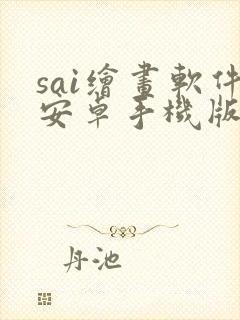 sai繪畫軟件
安卓手機版
丹池